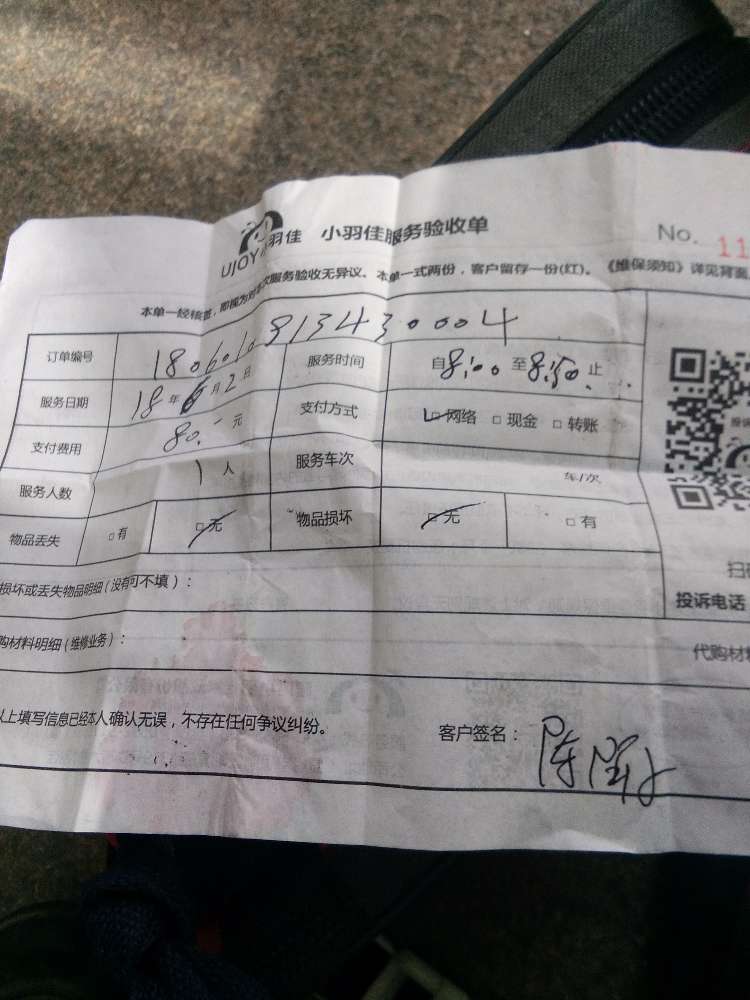 UJOY小羽佳 小羽佳服务验收单 No. 11
本单一经核签，即视为对本次服务验收无异议。本单一式两份，客户留存一份(红)。《维保须知》详见背面
订单编号 18060109134430004 服务时间 自8:00至8:50止
服务日期 18年6月2日 支付方式 □网络 □现金 □转账
支付费用 80.-元 服务车次 车/次
服务人数 1人
物品丢失 □有 □无 物品损坏 □无 □有
损坏或丢失物品明细（没有可不填）：
扫
投诉电话
购材料明细（维修业务）：
代购材
以上填写信息已经本人确认无误，不存在任何争议纠纷。 客户签名：陈